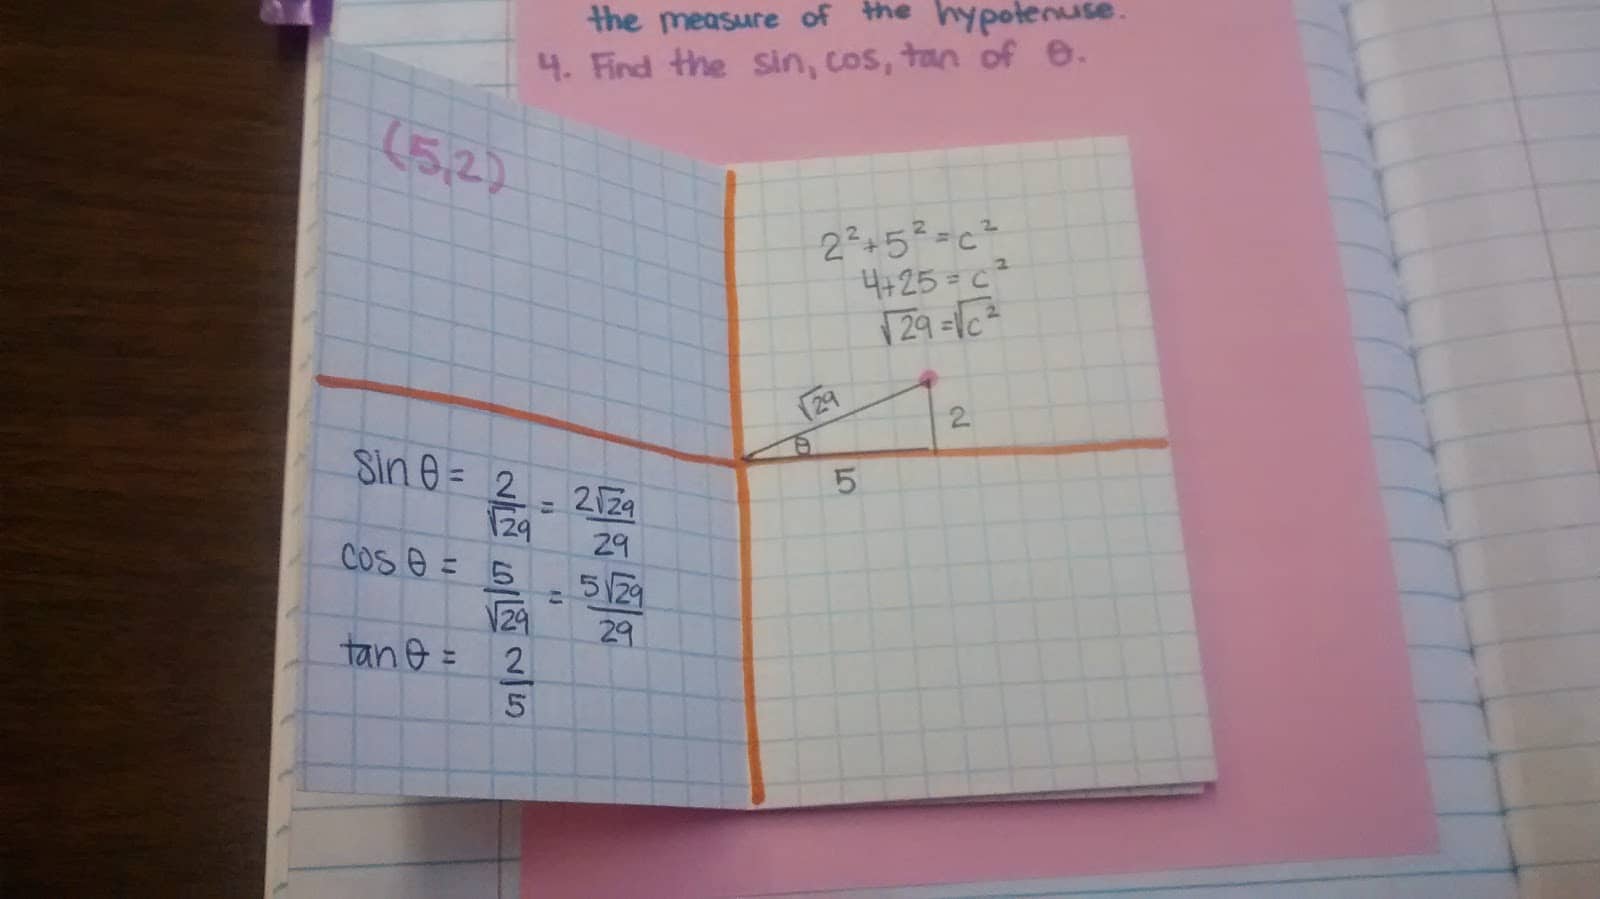 the measure of the hypotenuse.
4. Find the sin, cos, tan of θ.
(5,2)
2²+5²=c²
4+25=c²
√29=√c²
√29
θ
2
5
sin θ = 2/√29 = 2√29/29
cos θ = 5/√29 = 5√29/29
tan θ = 2/5